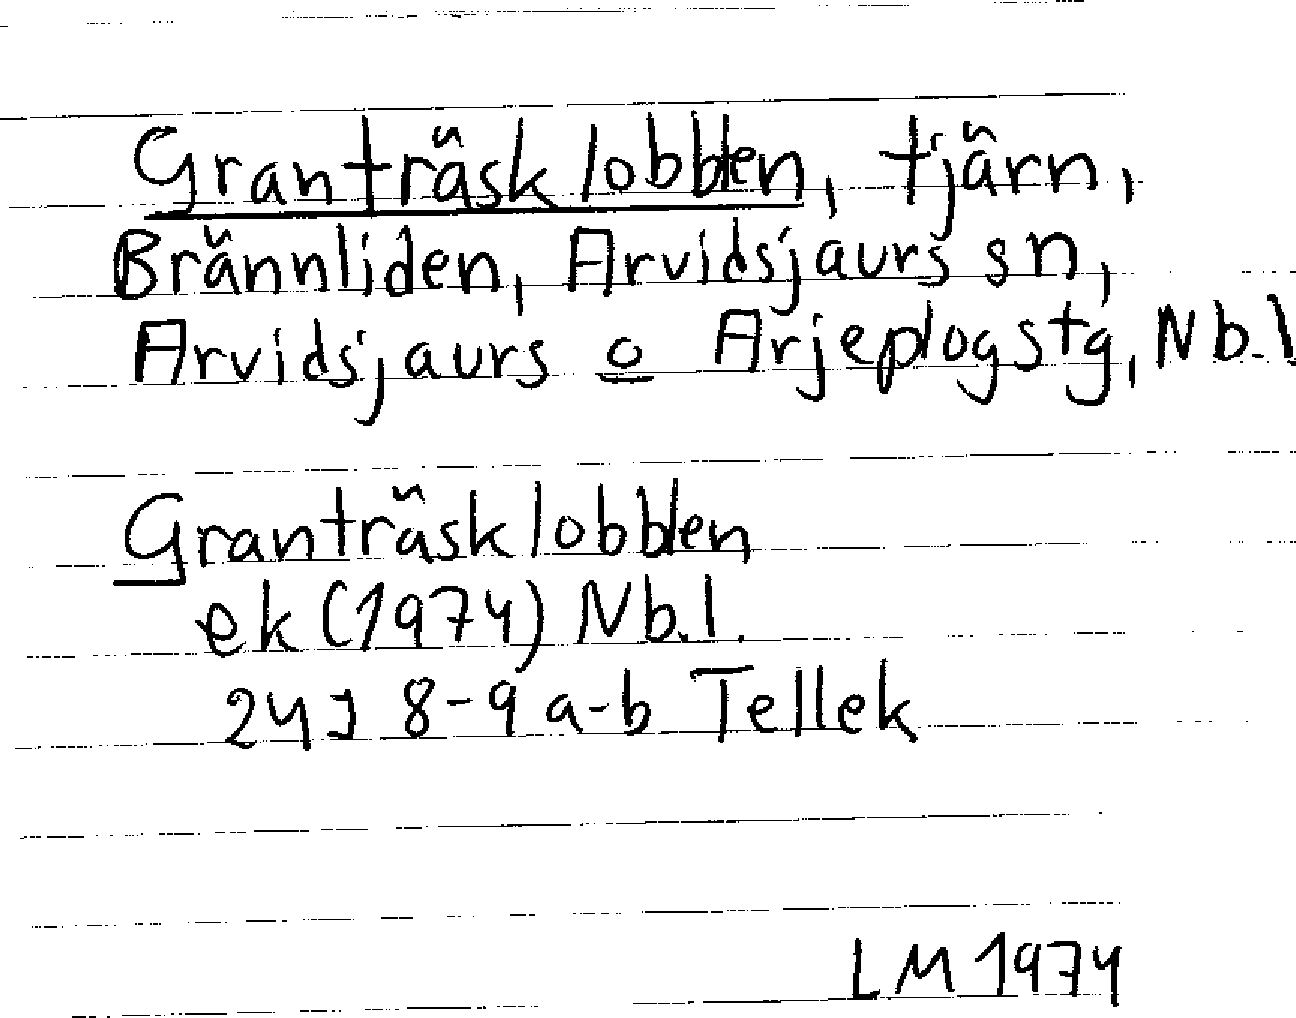 Granträsklobblen, tjärn,
Brännliden, Arvidsjaurs sn,
Arvidsjaurs o Arjeplogs tg, Nb.l
Granträsklobblen
ek (1974) Nb.l.
24J 8-9 a-b Tellek
LM 1974